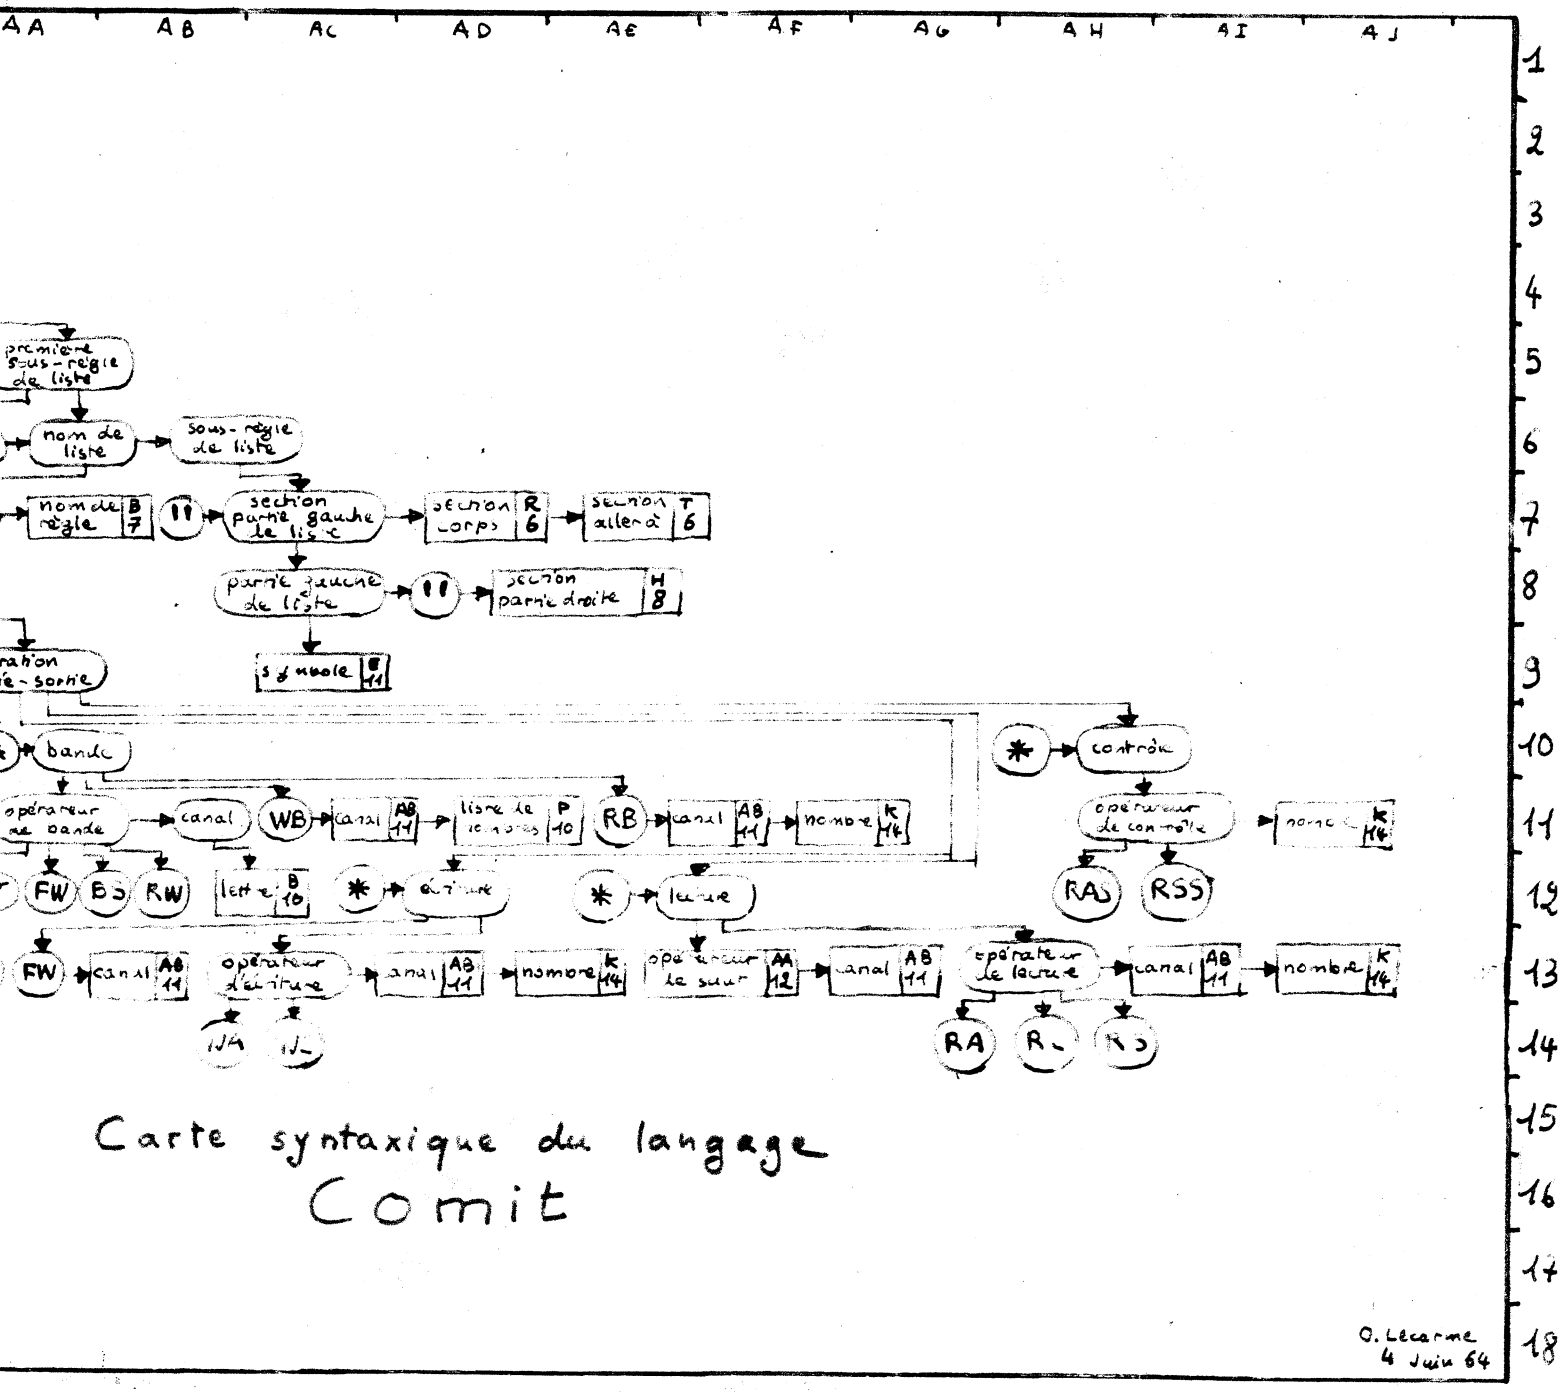 AA AB AC AD AE AF AG AH AI AJ
1
2
3
4
première
sous-règle
de liste
5
nom de
liste
sous-règle
de liste
6
nom de
règle
B
7
section
partie gauche
de liste
section
corps
R
6
section
aller à
T
6
7
partie gauche
de liste
section
partie droite
H
8
8
symbole
11
9
* bande
* contrôle
10
opérateur
de bande
canal
WB
canal
AB
11
liste de
nombres
P
10
RB
canal
AB
11
nombre
K
14
opérateur
de contrôle
nombre
K
14
11
FW
BS
RW
lettre
B
10
* écriture
* lecture
RAS
RSS
12
FW
canal
AB
11
opérateur
d'écriture
canal
AB
11
nombre
K
14
opérateur
de saut
AA
12
canal
AB
11
opérateur
de lecture
canal
AB
11
nombre
K
14
13
RA
14
15
Carte syntaxique du langage
Comit
16
17
O. Lecarme
4 Juin 64
18